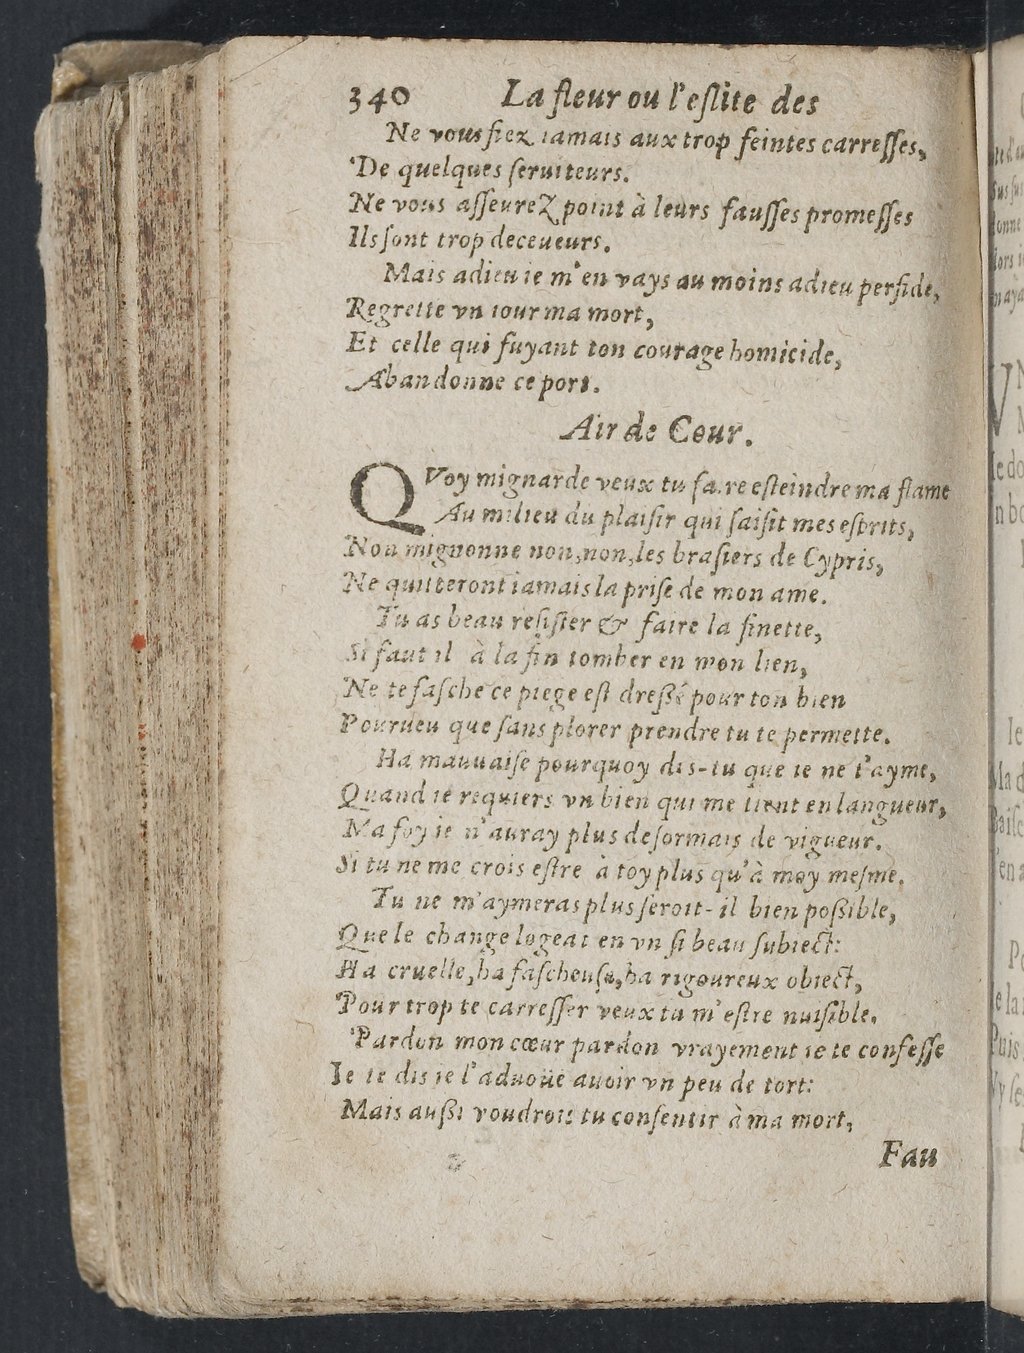 340 La fleur ou l'eslite des
Ne vous fiez iamais aux trop feintes carresses,
De quelques seruiteurs.
Ne vous asseurez point à leurs fausses promesses
Ils sont trop deceueurs.
Mais adieu ie m'en vays au moins adieu perfide,
Regrette vn iour ma mort,
Et celle qui fuyant ton courage homicide,
Abandonne ce port.
Air de Cour.
QVoy mignarde veux tu faire esteindre ma flame
Au milieu du plaisir qui saisit mes esprits,
Non mignonne non, non, les brasiers de Cypris,
Ne quitteront iamais la prise de mon ame.
Tu as beau resister & faire la finette,
Si faut il à la fin tomber en mon lien,
Ne te fasche ce piege est dressé pour ton bien
Pourueu que sans plorer prendre tu te permette.
Ha mauuaise pourquoy dis-tu que ie ne t'ayme,
Quand ie requiers vn bien qui me tient en langueur,
Ma foy ie n'auray plus desormais de vigueur.
Si tu ne me crois estre à toy plus qu'à moy mesme.
Tu ne m'aymeras plus seroit-il bien possible,
Que le change logeat en vn si beau subiect:
Ha cruelle, ha fascheuse, ha rigoureux obiect,
Pour trop te carresser veux tu m'estre nuisible.
Pardon mon cœur pardon vrayement ie te confesse
Ie te dis ie l'aduoüe auoir vn peu de tort:
Mais aussi voudrois tu consentir à ma mort,
Fau